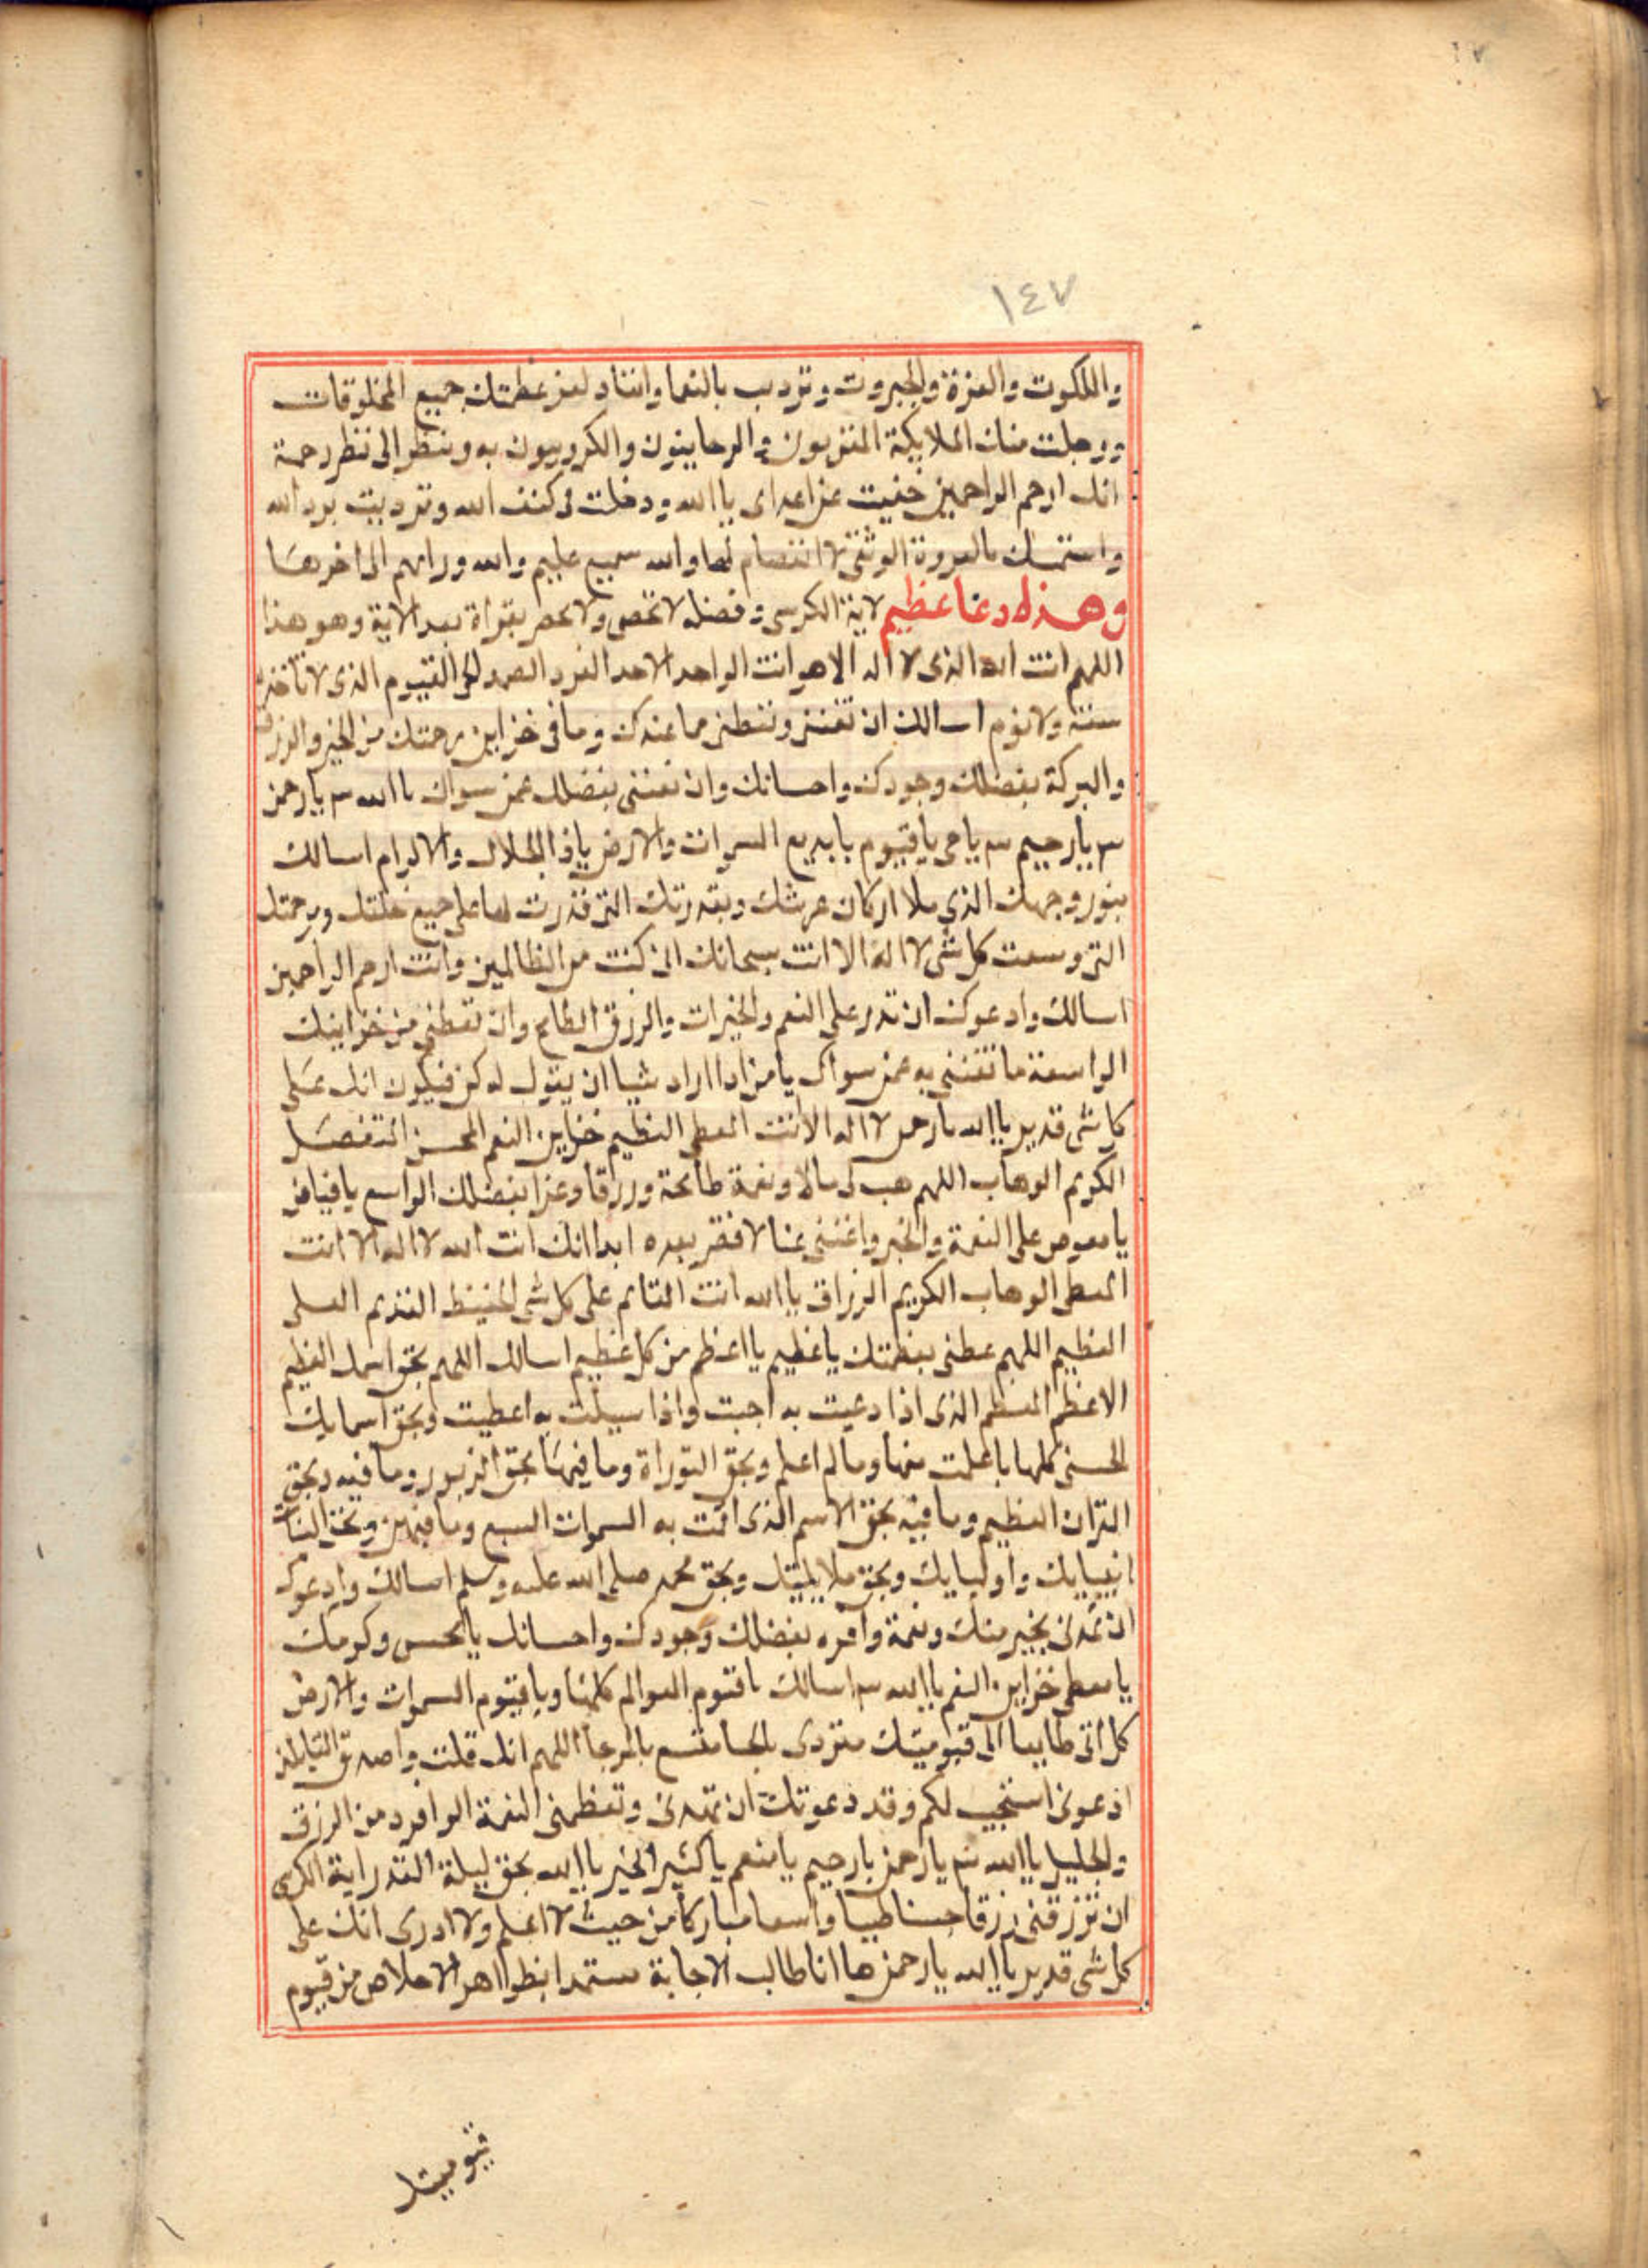 ١٤٧
والملكوت والعزة والجبروت وتردیت بالنعما وانقاد لعز عظمتك جميع المخلوقات
ووجلت منك الملايكة المقربون والروحانيون والكروبيون به وبنظر الى نظر رحمة
انك ارحم الراحمين خفيت عن اعداى يا الله ودخلت فى كنف الله وترديت برد الله
واستمسك بالعروة الوثقى لا انفصام لها والله سميع عليم والله ورايهم الى اخرها
وهذه دعا عظيم لاية الكرسى وفضله لا تحصى ولا تحصر بقراة بعد الاية وهو هذا
اللهم انت الله الذى لا اله الا هو انت الواحد الاحد الفرد الصمد الحى القيوم الذى لا تاخذه
سنة ولا نوم اسالك ان تغننى وتعطنى مما عندك وما فى خزاين رحمتك من الخير والرزق
والبركة بفضلك وجودك واحسانك وان تغننى بفضلك عمن سواك يا الله ٣ يا رحمن
٣ يا رحيم ٣ يا حى يا قيوم يا بديع السموات والارض يا ذا الجلال والاكرام اسالك
بنور وجهك الذي ملا اركان عرشك وبقدرتك التى قدرت بها على جميع خلقك وبرحمتك
التى وسعت كل شى لا اله الا انت سبحانك انى كنت من الظالمين وانت ارحم الراحمين
اسالك وادعوك ان تدر على النعم والخيرات والرزق الطامح وان تعطنى من خزاينك
الواسعة ما تغننى به عمن سواك يا من اذا اراد شيا ان يقول له كن فيكون انك على
كل شى قدير يا الله يا رحمن لا اله الا انت المعطى العظيم خزاين النعم المحسن المتفضل
الكريم الوهاب اللهم هب لى مالا ونعمة طامحة ورزقا وعزا بفضلك الواسع يا فياض
يا على النعمة والخير واغننى غنا لا فقر بعده ابدا انك انت الله لا اله الا انت
المعطى الوهاب الكريم الرزاق يا الله انت القائم على كل شى الحفيظ القديم العلى
العظيم اللهم عظمنى بعظمتك يا عظيم يا اعظم من كل عظيم اسالك اللهم بحق اسمك العظيم
الاعظم المعظم الذى اذا دعيت به اجبت واذا سيلت به اعطيت وبحق اسمايك
الحسنى كلها ما علمت منها وما لم اعلم وبحق التوراة وما فيها بحق الزبور وما فيه وبحق
القران العظيم وما فيه بحق الاسم الذى اقمت به السموات السبع وما فيهن وبحق
انبيايك واوليايك وبحق ملايكتك وبحق محمد صلى الله عليه وسلم اسالك وادعوك
ان تمدنى بخير منك ونعمة وافره بفضلك وجودك واحسانك يا محسن وكرمك
يا معطى خزاين النعم يا الله ٣ اسالك يا قيوم العوالم كلها ويا قيوم السموات والارض
كل اتى طايعا الى قيوميتك متردى بالرجا اللهم انك قلت واصدق القايلين
ادعونى استجيب لكم وقد دعوتك ان تمدنى وتعطنى النعمة الوافرة من الرزق
والجليل يا الله ٣ يا رحمن يا رحيم يا منعم يا كثير الخير يا الله بحق ليلة القدر اية الكرسى
ان ترزقنى رزقا حسنا طيبا واسعا مباركا من حيث لا اعلم ولا ادرى انك على
كل شى قدير يا الله يا رحمن ها انا طالب الاجابة مستمدا بظواهر الاخلاص من قيوم
قيوميتك